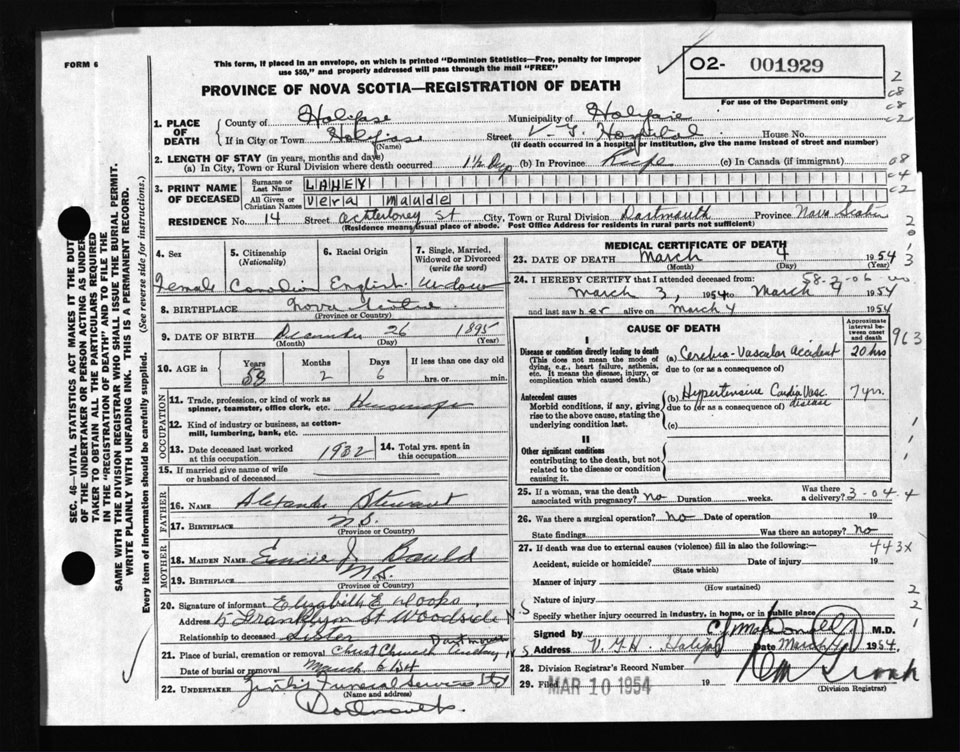 FORM 6
This form, if placed in an envelope, on which is printed "Dominion Statistics—Free, penalty for improper
use $50," and properly addressed will pass through the mail "FREE"
O2- 001929
For use of the Department only
PROVINCE OF NOVA SCOTIA—REGISTRATION OF DEATH
1. PLACE OF DEATH
County of Halifax Municipality of Halifax
If in City or Town Halifax Street V. G. Hospital House No.
(Name) (If death occurred in a hospital or institution, give the name instead of street and number)
2. LENGTH OF STAY (in years, months and days)
(a) In City, Town or Rural Division where death occurred 1½ Dys (b) In Province Life (c) In Canada (if immigrant)
3. PRINT NAME OF DECEASED
Surname or Last Name LAHEY
All Given or Christian Names Vera Maude
RESIDENCE No. 14 Street St City, Town or Rural Division Dartmouth Province Nova Scotia
(Residence means usual place of abode. Post Office Address for residents in rural parts not sufficient)
4. Sex
Female
5. Citizenship (Nationality)
Canadian
6. Racial Origin
English
7. Single, Married, Widowed or Divorced (write the word)
Widow
8. BIRTHPLACE Nova Scotia
(Province or Country)
9. DATE OF BIRTH December 26 1895
(Month) (Day) (Year)
10. AGE in Years 58 Months 2 Days 6 If less than one day old
hrs. or min.
OCCUPATION
11. Trade, profession, or kind of work as
spinner, teamster, office clerk, etc. Housewife
12. Kind of industry or business, as cotton-
mill, lumbering, bank, etc.
13. Date deceased last worked
at this occupation 1932
14. Total yrs. spent in
this occupation
15. If married give name of wife
or husband of deceased
FATHER
16. NAME Alexander Stewart
17. BIRTHPLACE N.S.
(Province or Country)
MOTHER
18. MAIDEN NAME J.
19. BIRTHPLACE N.S.
(Province or Country)
20. Signature of informant Elizabeth E.
Address 5 Franklyn St Woodside N.S
Relationship to deceased Sister
21. Place of burial, cremation or removal Christ Church Cemetery Dartmouth N.S
Date of burial or removal March 6
22. UNDERTAKER Funeral Service Ltd
(Name and address)
Dartmouth
MEDICAL CERTIFICATE OF DEATH
23. DATE OF DEATH March 4 1954
(Month) (Day) (Year)
24. I HEREBY CERTIFY that I attended deceased from:
March 3, 1954 to March 4 1954
and last saw her alive on March 4 1954
CAUSE OF DEATH
Approximate interval between onset and death
I
Disease or condition directly leading to death (a) Cerebro-Vascular Accident 20 hrs
(This does not mean the mode of
dying, e.g., heart failure, asthenia,
etc. It means the disease, injury, or
complication which caused death.)
due to (or as a consequence of)
Antecedent causes (b) Hypertensive Cardio Vasc. disease 7 yrs.
Morbid conditions, if any, giving
rise to the above cause, stating the
underlying condition last.
due to (or as a consequence of)
(c)
II
Other significant conditions
contributing to the death, but not
related to the disease or condition
causing it.
25. If a woman, was the death
associated with pregnancy? no Duration weeks. Was there a delivery? 3-04.4
26. Was there a surgical operation? no Date of operation 19
State findings Was there an autopsy? No
27. If death was due to external causes (violence) fill in also the following:— 443x
Accident, suicide or homicide? Date of injury 19
(State which)
Manner of injury
(How sustained)
Nature of injury
Specify whether injury occurred in industry, in home, or in public place
Signed by M.D.
Address V.G.H. Halifax Date March 1954.
28. Division Registrar's Record Number
29. Filed MAR 10 1954 19
(Division Registrar)
963
SEC. 46—VITAL STATISTICS ACT MAKES IT THE DUTY
OF THE UNDERTAKER OR PERSON ACTING AS UNDER-
TAKER TO OBTAIN ALL THE PARTICULARS REQUIRED
IN THE "REGISTRATION OF DEATH" AND TO FILE THE
SAME WITH THE DIVISION REGISTRAR WHO SHALL ISSUE THE BURIAL PERMIT.
WRITE PLAINLY WITH UNFADING INK. THIS IS A PERMANENT RECORD.
Every item of information should be carefully supplied. (See reverse side for instructions.)